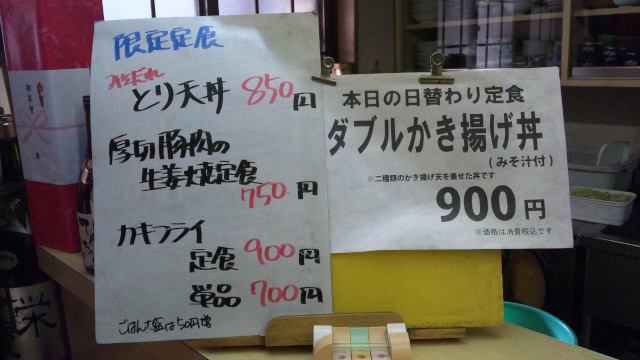 限定定食
とり天丼 850円
厚切豚肉の
生姜焼定食
750円
カキフライ
定食 900円
単品 700円
ごはん大盛は50円増
本日の日替わり定食
ダブルかき揚げ丼
(みそ汁付)
※二種類のかき揚げ天を乗せた丼です
900円
※価格は消費税込です